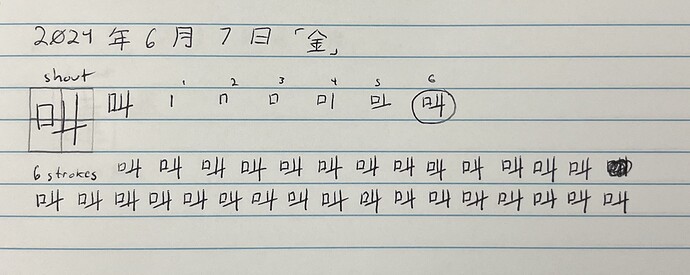 2024 年 6 月 7 日 「金」
shout 1 2 3 4 5 6
叫 叫 丨 冂 口 叫
6 strokes 叫 叫 叫 叫 叫 叫 叫 叫 叫 叫 叫 叫 叫
叫 叫 叫 叫 叫 叫 叫 叫 叫 叫 叫 叫 叫 叫 叫 叫 叫